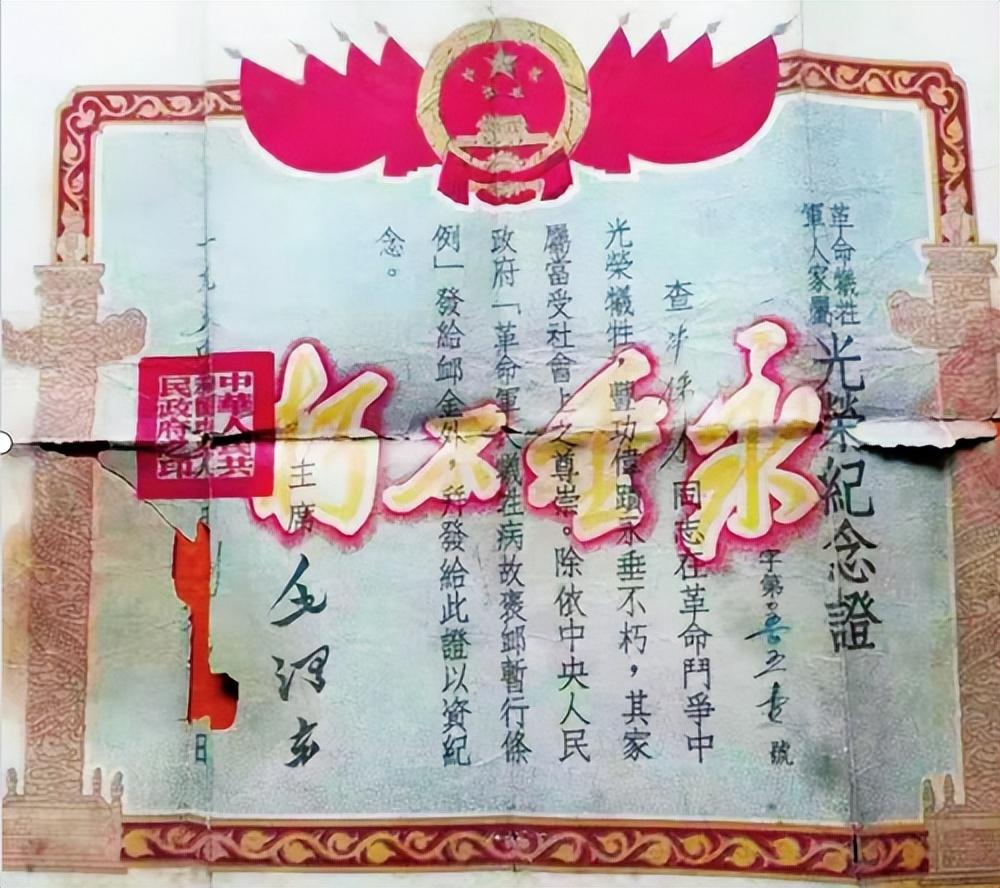 革命犧牲
軍人家屬
光榮紀念證
字第 號
永垂不朽
查 同志在革命鬥爭中
光榮犧牲，豐功偉蹟永垂不朽，其家
屬當受社會上之尊崇。除依中央人民
政府「革命軍人犧牲病故褒卹暫行條
例」發給卹金外，并發給此證以資紀
念。
主席 毛澤東
一九 日
中華人民共
和國中央人
民政府之印